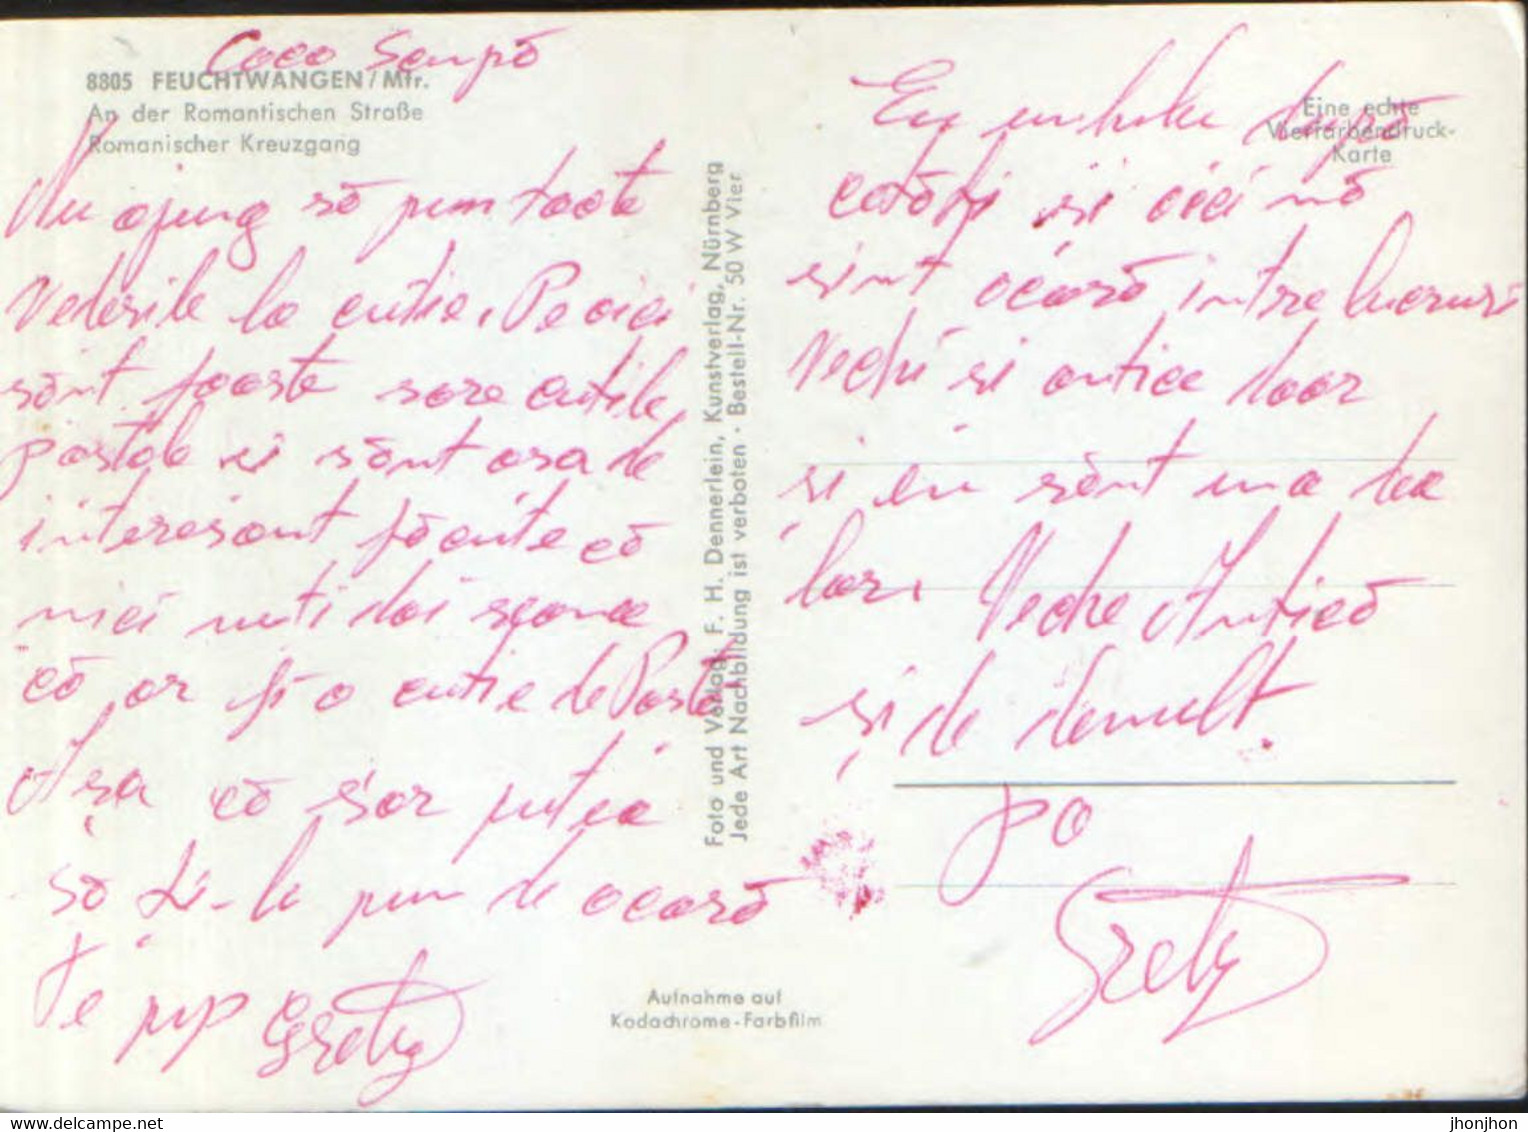 Coco Scumpă
8805 FEUCHTWANGEN/Mfr.
An der Romantischen Straße
Romanischer Kreuzgang
Nu ajung să pun toate
Vederile la cutie. Pe aici
sânt foarte rare cutiile
postale si sânt asa de
interesant făcute că
nici nu-ti dai seama
că ar fi o cutie de Postă
Asa că s'ar putea
să ti-le pun de acasă
Te pup Grety
Foto und Verlag: F. H. Dennerlein, Kunstverlag, Nürnberg
Jede Art Nachbildung ist verboten · Bestell-Nr. 50 W Vier
Aufnahme auf
Kodachrome-Farbfilm
Eine echte
Vierfarbendruck-
Karte
Eu umblu după
cetăti si aici mă
simt acasă intre lucruri
Vechi si antice doar
si eu sânt una dea
lor. Veche Antică
și de demult.
pa
Grety
jhonjhon